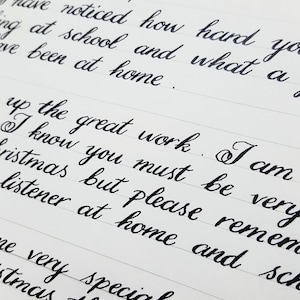 have noticed how hard you
at school and what a
have been at home.
up the great work. I am
I know you must be very
christmas but please remem
listener at home and sch
very special